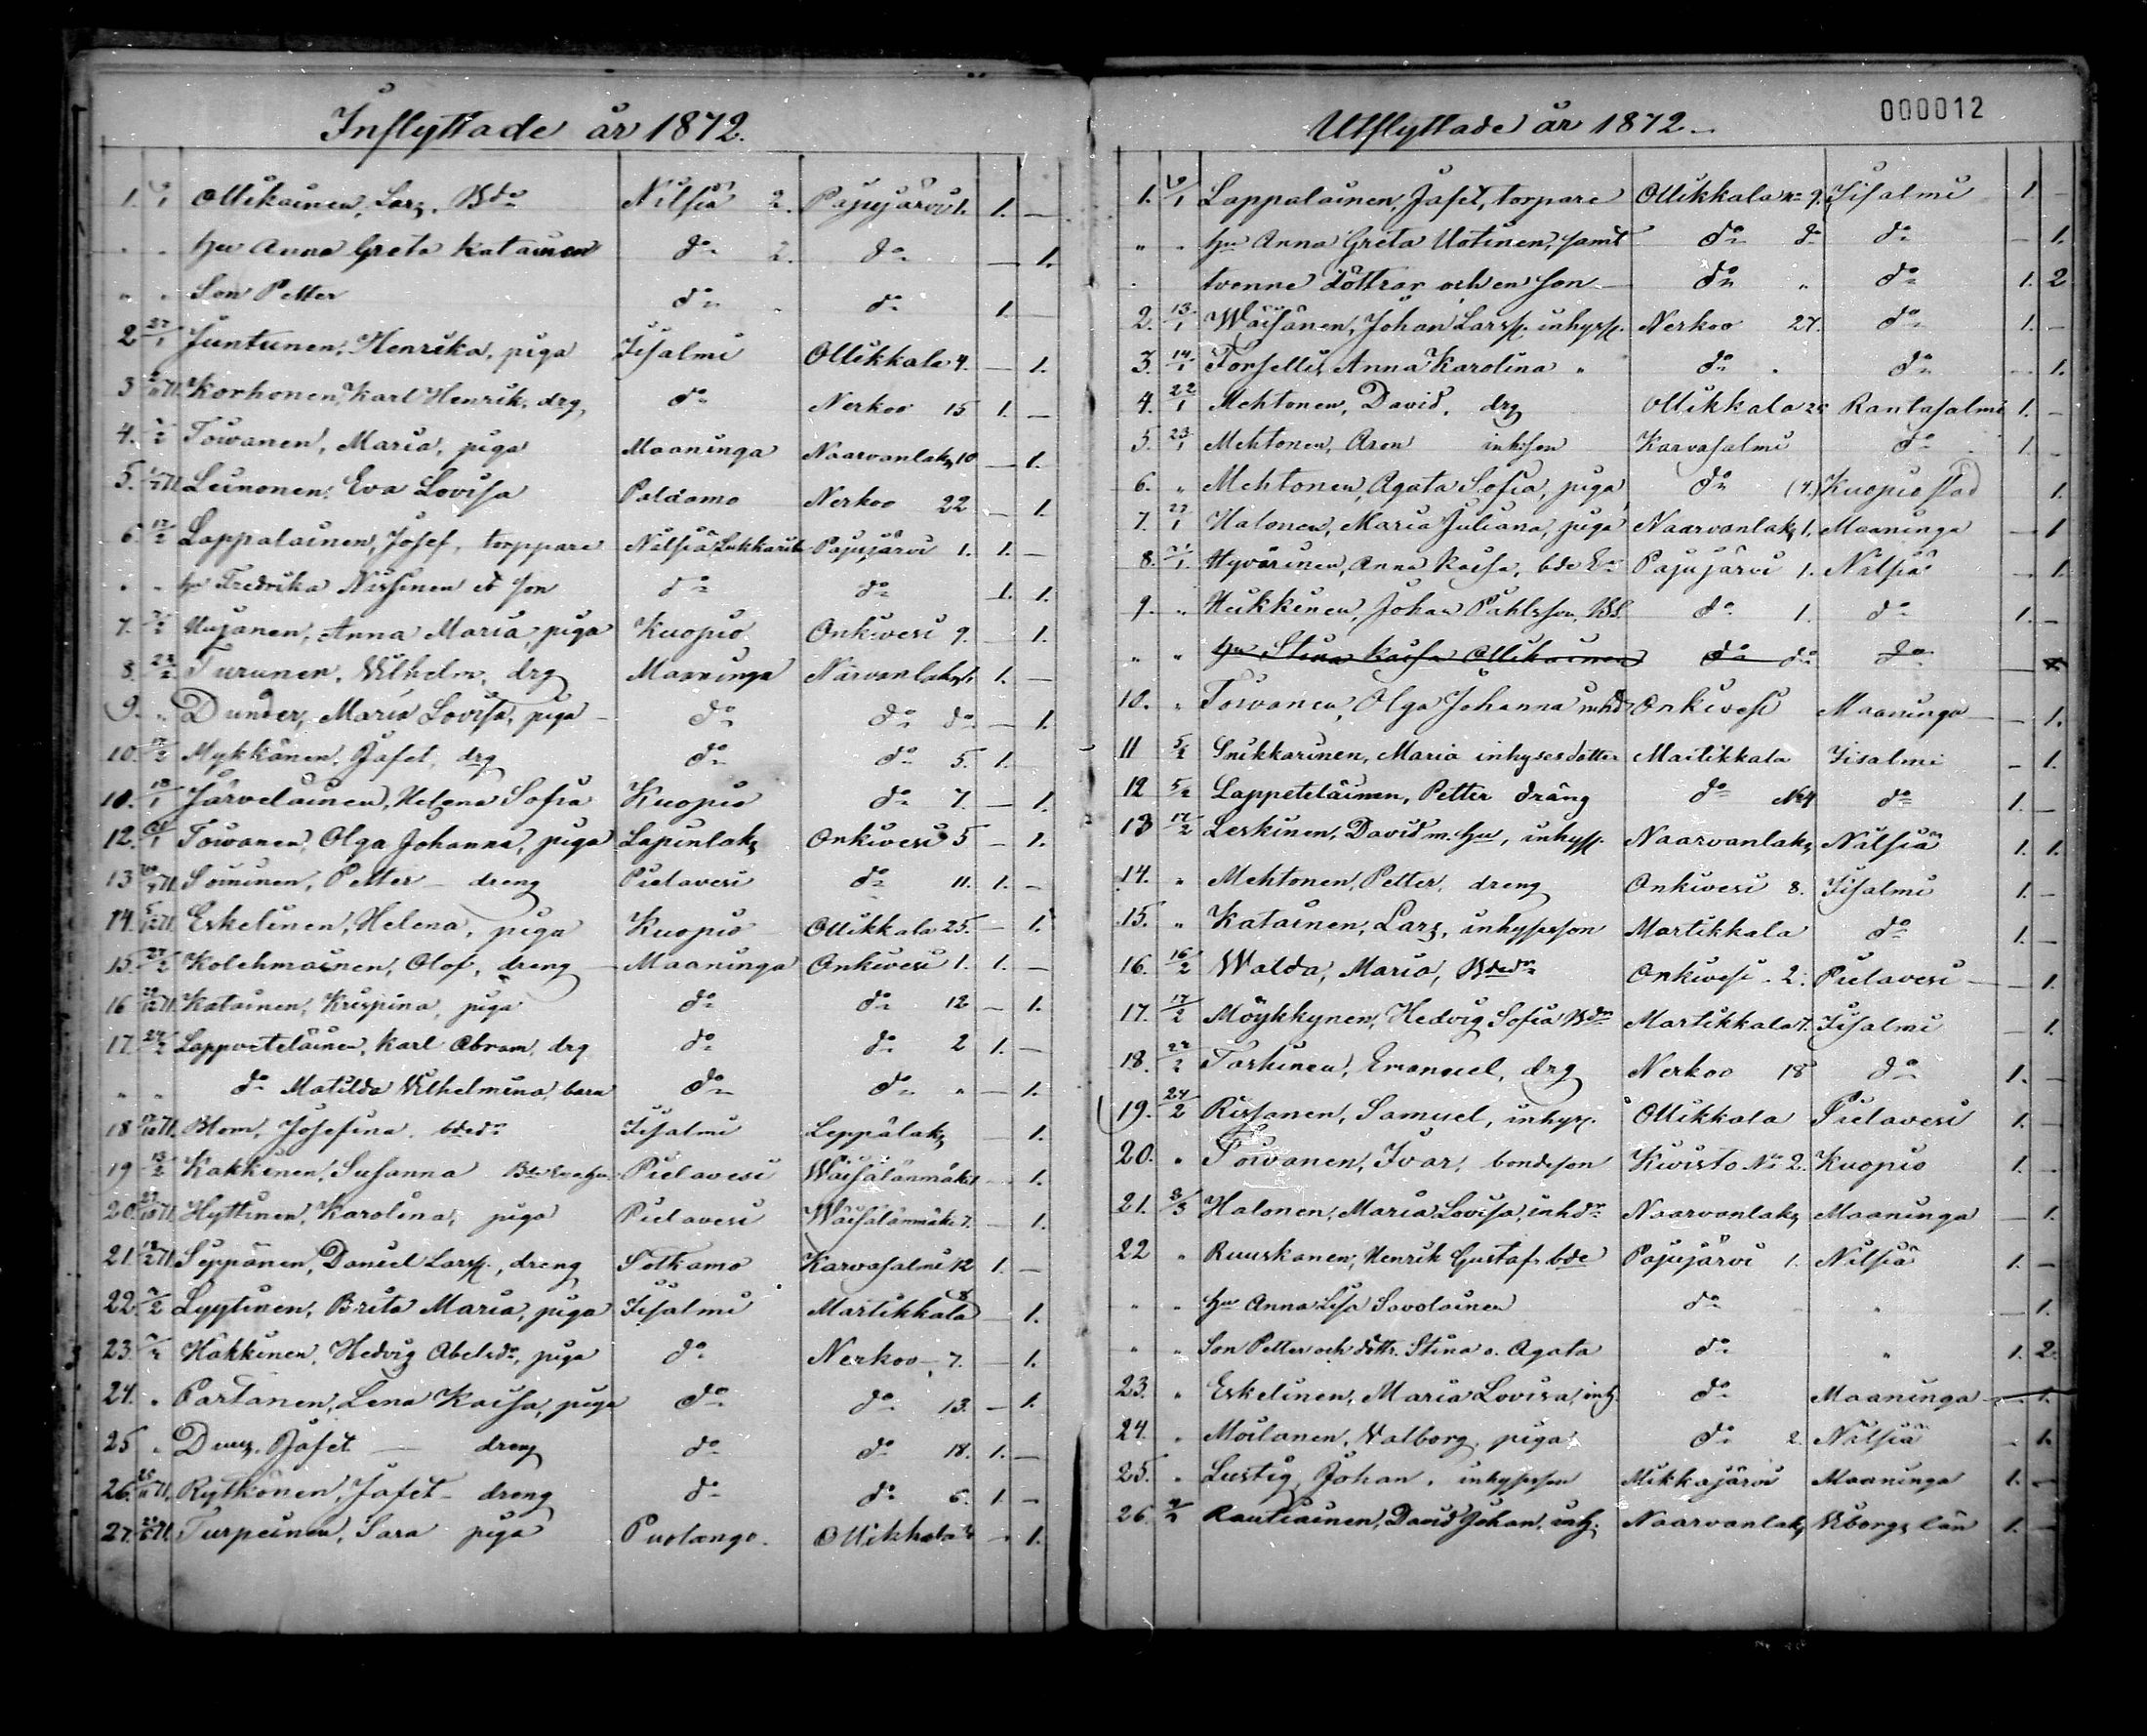 Inflyttade år 1872.
1. 9/1 Ollikainen, Lars, Bdo Nilsiä 2. Pajujärvi 1. 1. —
" " hu Anna Greta Katainen do 2. do — 1.
" " Son Petter do " do 1. —
2 27/1 Juntunen, Henrika, piga Iisalmi Ollikkala 4. — 1.
3 /11 71. Korhonen, Karl Henrik, drg do Nerkoo 15 1. —
4. /2 Toivanen, Maria, piga Maaninga Naarvanlaks 10 — 1.
5. 71. Leinonen, Eva Lovisa Paldamo Nerkoo 22 — 1.
6. 17/2 Lappalainen, Josef, torppare Nilsiä, Pajujärvi 1. 1. —
" " hu Fredrika Nissinen et son do do 1. 1.
7. /2 Anna Maria, piga Kuopio Onkivesi 9. — 1.
8. 23/2 Turunen, Wilhelm, drg Maaninga Narvanlaks 1. 1. —
9. " Dunder, Maria Lovisa, piga — do do do — 1.
10. 17/2 Mykkänen, Jafet, drg do do 5. 1.
10. 18/1 Järveläinen, Helena Sofia Kuopio do 7. — 1.
12. /1 Toivanen, Olga Johanna, piga Lapinlaks Onkivesi 5 — 1.
13 71. Soininen, Petter — dreng Pielavesi do 11. 1. —
14. 5/12 71. Eskelinen, Helena, piga Kuopio Ollikkala 25. — 1.
15. 27/2 Kolehmainen, Olof, dreng — Maaninga Onkivesi 1. 1. —
16 29/12 71. Katainen, Krispina, piga do do 12 — 1.
17. 24/2 Lappveteläinen, Karl Abram, drg do do 2 1. —
" " do Matilda Wilhelmina, barn do do " — 1.
18 71. Blom, Josefina, bdedr Iisalmi Leppälaks — 1.
19 13/2 Kakkinen, Susanna Pielavesi Wäisälänmäki — 1.
20. 23/10 71. Hyttinen, Karolina, piga Pielavesi Wäisälänmäki 7. — 1.
21. 71. Seppänen, Daniel Larss., dreng Sotkamo Karvasalmi 12 1. —
22. /2 Lyytinen, Brita Maria, piga Iisalmi Martikkala 8 — 1.
23. Häkkinen, Hedvig Abelsdr, piga do Nerkoo — 7. — 1.
24. " Partanen, Lena Kaisa, piga do do 13. — 1.
25 " Jafet — dreng do do 18. 1. —
26. 25/11 71. Rytkönen, Jafet — dreng do do 6. 1. —
27. 71. Turpeinen, Sara piga Puolango. Ollikkala — 1.
Utflyttade år 1872.
000012
1. 9/1 Lappalainen, Jafet, torpare Ollikkala No 9. Iisalmi 1. —
" " hu Anna Greta Uotinen, samt do do do — 1.
" tvenne döttrar och en son — do " do 1. 2
2. 13/1 Wäisänen, Johan Larss. inhyss. Nerkoo 27. do 1. —
3. 14/1 Forsellis, Anna Karolina " do " do — 1.
4. 22/1 Mehtonen, David, drg Ollikkala 25 Rantasalmi 1. —
5. 23/1 Mehtonen, Aron inhsson Karvasalmi do 1. —
6. " Mehtonen, Agata Sofia, piga do (4.) Kuopio stad 1.
7. 27/1 Halonen, Maria Juliana, piga Naarvanlaks 1. Maaninga — 1
8. /1 Hyvärinen, Anna Kaisa, bde Ea Pajujärvi 1. Nilsiä — 1.
9. " Heikkinen, Johan Påhlsson, do 1. do 1. —
" " hu Stina Kaisa Ollikainen do do do — 1.
10. " Toivanen, Olga Johanna inhd Onkivesi Maaninga — — 1.
11 5/2 Snikkarinen, Maria inhysesdotter Martikkala Iisalmi — 1.
12 5/2 Lappeteläinen, Petter dräng do No 4 do 1. —
13 17/2 Leskinen, David m. hu, inhyss. Naarvanlaks Nilsiä 1. 1.
14. " Mehtonen, Petter, dreng Onkivesi 8. Iisalmi 1. —
15. " Katainen, Lars, inhysesson Martikkala do 1. —
16. 16/2 Walda, Maria, Bdedr Onkivesi 2. Pielavesi — — 1.
17. 17/2 Möykkynen, Hedvig Sofia Bdr Martikkala 7. Iisalmi — 1.
18. 22/2 Tarkinen, Emanuel, drg Nerkoo 18 do 1. —
19. 24/2 Rissanen, Samuel, inhys. Ollikkala Pielavesi 1. —
20. " Toivanen, Ivar, bondeson Kivisto No 2. Kuopio 1. —
21. 3/3 Halonen, Maria Lovisa, inhdr Naarvanlaks Maaninga — 1.
22 " Ruuskanen, Henrik Gustaf, bde Pajujärvi 1. Nilsiä 1. —
" " hu Anna Lisa Savolainen do " — 1.
" " Son Petter och döttr. Stina o. Agata do " 1. 2.
23. " Eskelinen, Maria Lovisa, inh. do Maaninga — 1.
24. " Moilanen, Walborg, piga do 2. Nilsiä — 1.
25. " Lustig, Johan, inhysesson Mikkajärvi Maaninga 1. —
26. Rautiainen, David Johan, inh. Naarvanlaks Wiborgs län 1. —